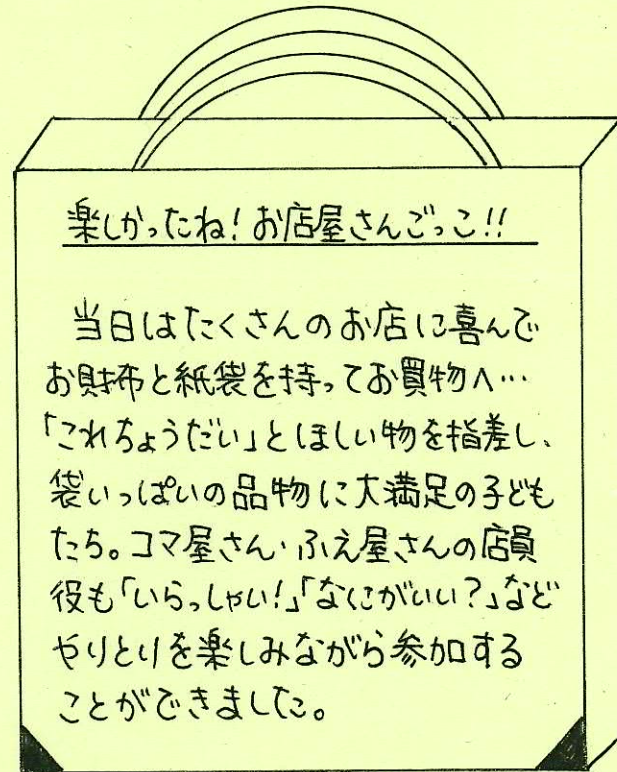 楽しかったね！お店屋さんごっこ！！
当日はたくさんのお店に喜んで
お財布と紙袋を持ってお買物へ…
「これちょうだい」とほしい物を指差し、
袋いっぱいの品物に大満足の子ども
たち。コマ屋さん・ふえ屋さんの店員
役も「いらっしゃい！」「なにがいい？」など
やりとりを楽しみながら参加する
ことができました。